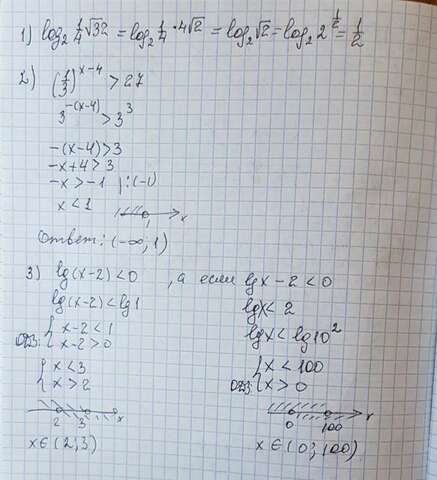 1) log₂ ¼√32 = log₂ ¼ · 4√2 = log₂√2 = log₂ 2^½ = ½
2) (⅓)^(x-4) > 27
3^-(x-4) > 3³
-(x-4) > 3
-x+4 > 3
-x > -1 | :(-1)
x < 1
1 x
Ответ: (-∞; 1)
3) lg(x-2) < 0, а если lgx - 2 < 0
lg(x-2) < lg1
{ x-2 < 1
ОДЗ: { x-2 > 0
{ x < 3
{ x > 2
2 3 x
x ∈ (2; 3)
lgx < 2
lgx < lg10²
{ x < 100
ОДЗ: { x > 0
0 100 x
x ∈ (0; 100)